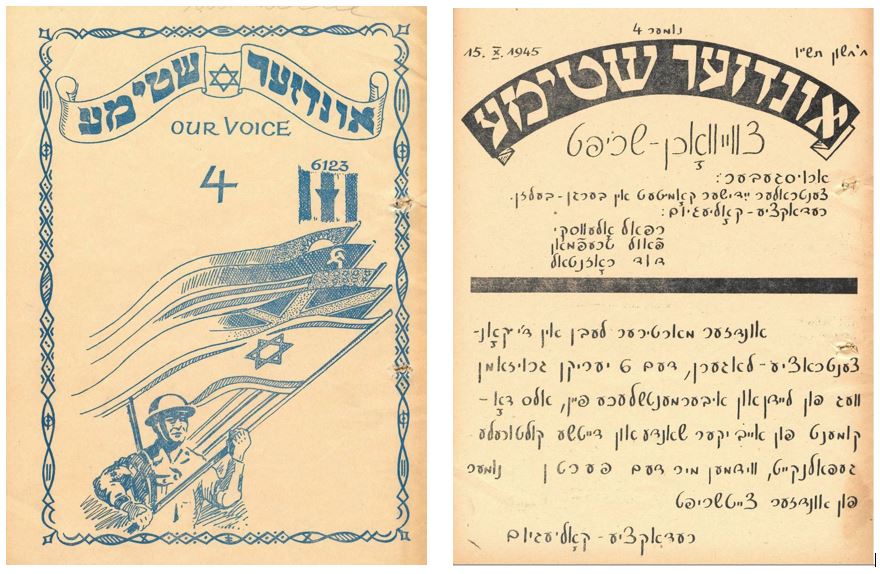 אונדזער שטימע
OUR VOICE
4
6123
נומער 4
15. X. 1945
ח' חשון תש"ו
אונדזער שטימע
צווייוואָכן-שריפט
ארויסגעבער:
צענטראלער יידישער קאָמיטעט אין בערגן-בעלזן.
רעדאקציע-קאָליעגיום:
רפאל אָלעווסקי
פּאול טרעפּמאן
דוד ראָזנטאל
אונדזער מארטירער לעבן אין די קאָנ-
צענטראציע-לאגערן, דעם 6 יעריקן גרויזאמן
וועג פון ליידן און איבערמענטשלעכע פיין, אלס דאָ-
קומענט פון אייביקער שאנדע און דייטשע קולטורעלע
געפאלנקייט, ווידמען מיר דעם פערטן נומער
פון אונדזער צייטשריפט
רעדאקציע-קאָליעגיום